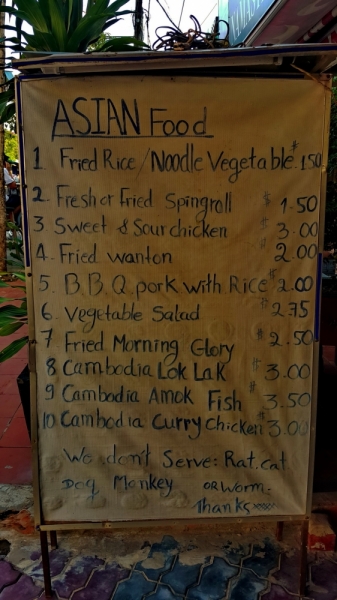 ASIAN Food
1 Fried Rice/Noodle Vegetable $ 1.50
2 Fresh or Fried Spingroll $ 1.50
3 Sweet & Sour chicken $ 3.00
4. Fried wanton 2.00
5. B.B.Q pork with Rice $ 2.00
6. Vegetable Salad $ 2.75
7 Fried Morning Glory $ 2.50
8 Cambodia Lok Lak $ 3.00
9 Cambodia Amok Fish $ 3.50
10 Cambodia Curry Chicken $ 3.00
We don't Serve: Rat. cat
Dog Monkey OR Worm.
Thanks